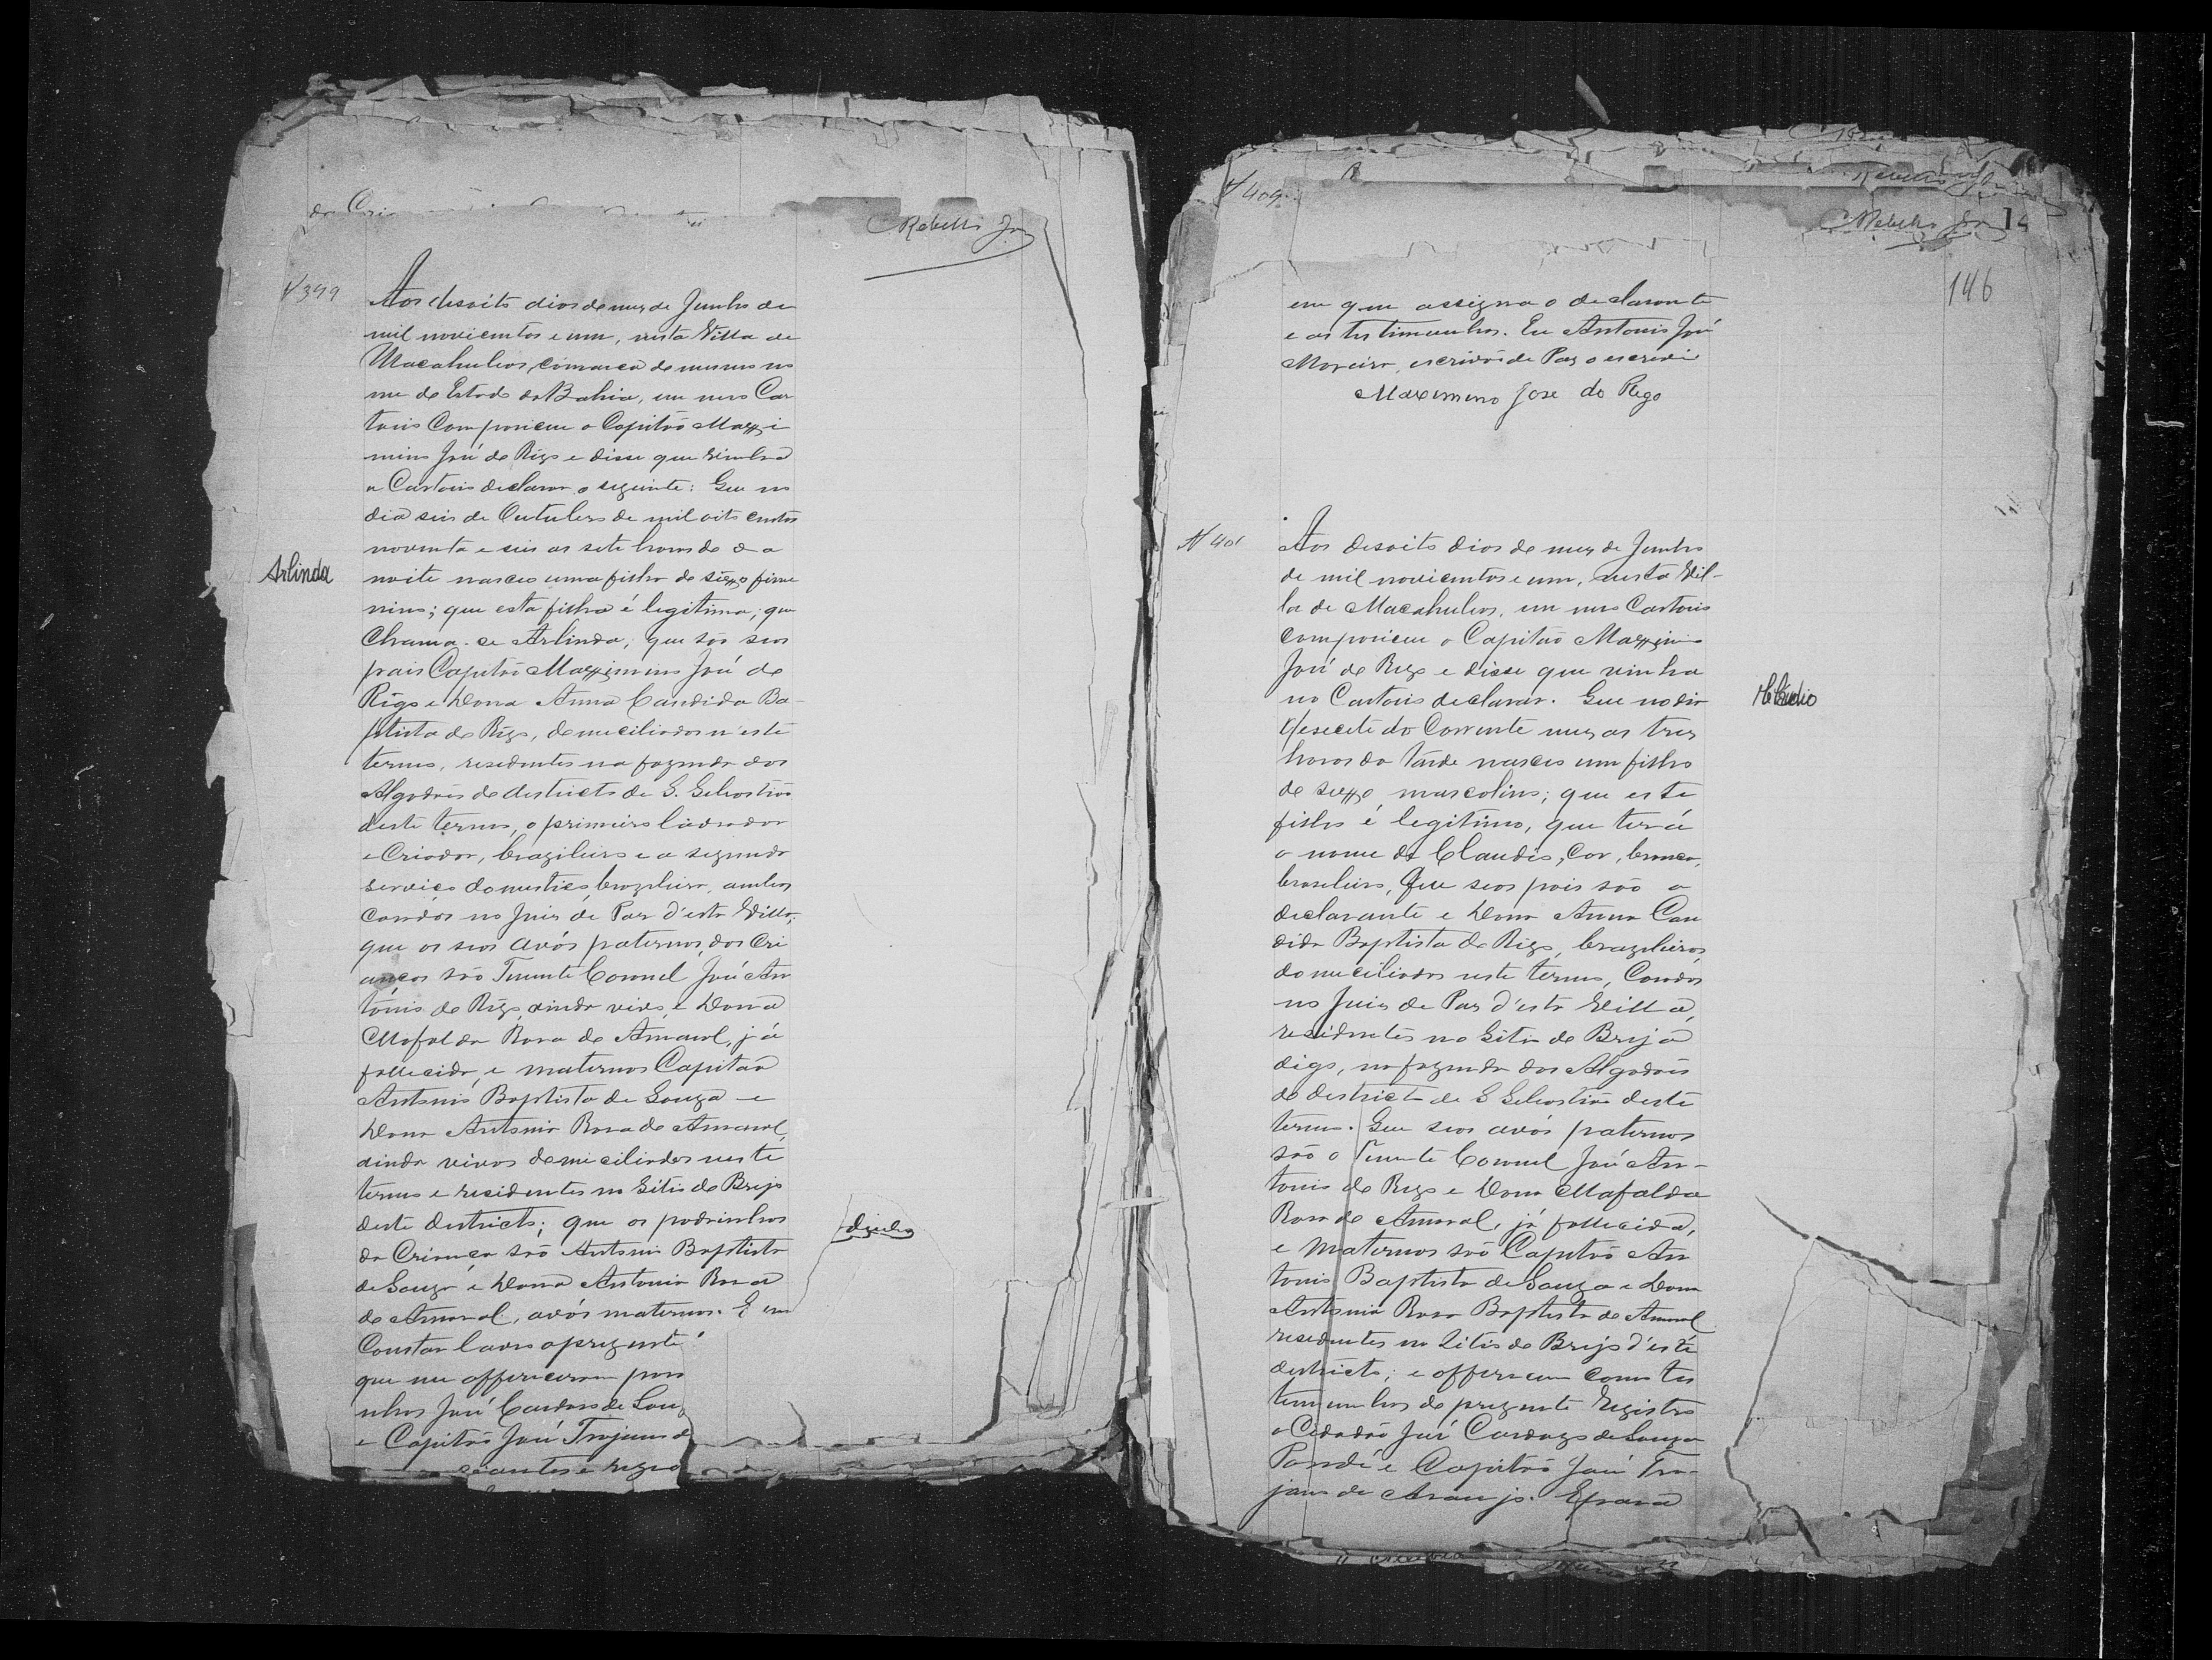 da Cri
Rebello Jor
N 399
Aos desoito dias do mez de Junho de
mil novicentos e um, nesta Villa de
Macahubas, comarca do mesmo no
me do Estado da Bahia, em meo Car
torio Compariceu o Capitão Maxi
mino José do Rego e disse que vinha
a Cartorio declarar o seguinte: Que no
dia seis de Outubro de mil oito centos
noventa e seis as sete horas da
Arlinda
noite nasceo uma filha do sexo fime
nino; que esta filha é legitima; que
Chama-se Arlinda; que são seos
pais Capitão Maximino José do
Rego e Dona Anna Candida Ba-
ptista do Rego, domiciliados n'este
termo, residentes na fazenda dos
Algodões do districto de S. Sebastião
deste termo, o primeiro lavrador
e Criador, brazileiro e a segunda
serviço domestico brazileira, ambos
Casados no Juiz de Paz d'esta Villa;
que os seos avós paternos das Cri
anças são Tenente Coronel José An
tonio do Rego, ainda vivo, e Dona
Mafalda Rosa do Amaral, já
fallecida, e maternos Capitão
Antonio Baptista de Souza e
Dona Antonia Rosa do Amaral,
ainda vivos domiciliados neste
termo e residentes no Sitio do Brejo
deste districto; que os padrinhos
da Criança são Antonio Baptista
de Souza e Dona Antonia Rosa
do Amaral, avós maternos. E em
Constar lavro o prezente
que me offericeram
nhas José Cardoso de Sou
e Capitão José Trajano d
N 409
Rebello
Rebello Jor 14
146
em que assigna o declarante
e as testimunhas. Eu Antonio José
Moreira, escrivão de Paz o escrevi
Maximino Jose do Rego
N 401
Aos desoito dias do mez de Junho
de mil novicentos e um, nesta Vil-
la de Macahubas, em meo Cartorio
compariceu o Capitão Maximino
José do Rego e disse que vinha
no Cartorio declarar. Que no dia
Claudio
desecete do Corrente mez as tres
horas da tarde nasceo um filho
do sexo mascolino; que este
filho é legitimo, que terá
o nome de Claudio, Cor, branca,
brasileiro, Que seos pais são o
declarante e Dona Anna Can
dida Baptista do Rego, brazileiros
domiciliados neste termo, Casados
no Juiz de Paz d'esta Villa,
residentes no Sitio do Brejo
digo, na fazenda dos Algodões
do districto de S Sebastião deste
termo. Que seos avós paternos
são o Tenente Coronel José An-
tonio do Rego e Dona Mafalda
Rosa do Amaral, já fallecida,
e Maternos são Capitão An
tonio Baptista de Souza e Dona
Antonia Rosa Baptista do Amaral
residentes no Sitio do Brejo d'este
districto; e offerecem como tes
timunhas do prezente registro
o Cidadão José Cardozo de Souza
e Capitão José Tra-
jano de Araujo. E para